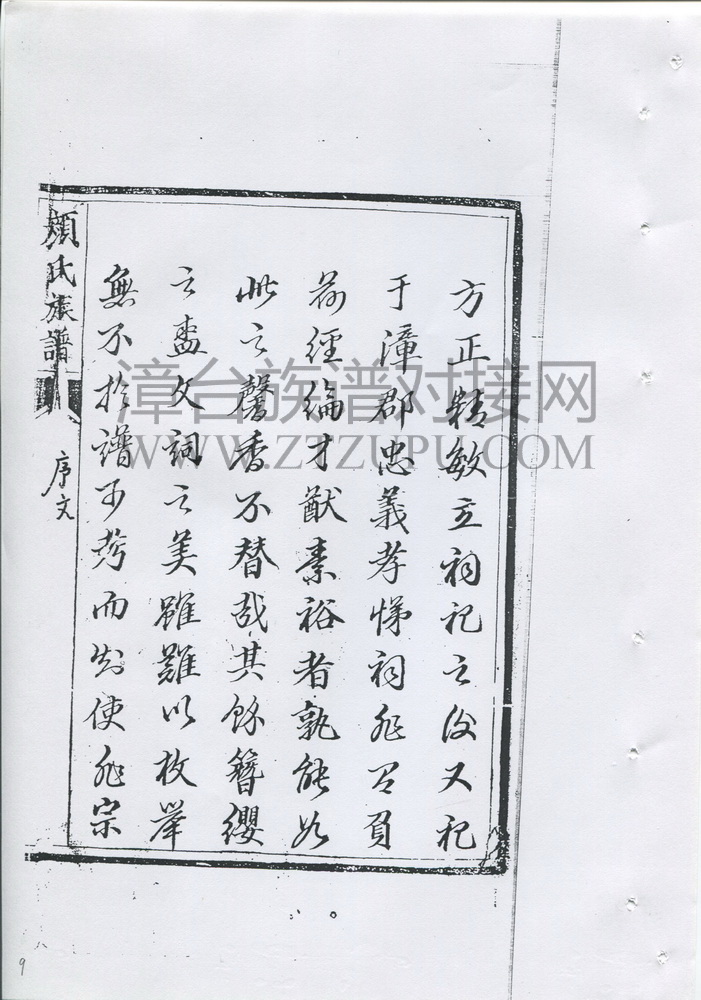 方正精敏立祠祀之後又祀
于漳郡忠義孝悌祠非公負
荷經綸才猷素裕者孰能如
此之馨香不替哉其餘簪纓
之盛文詞之美雖難以枚舉
無不於譜可考而知使非宗
顏氏族譜
序文
漳台族谱对接网
WWW.ZTZUPU.COM
9